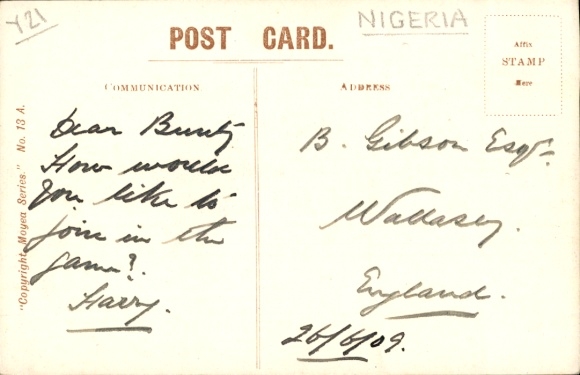 Y21
NIGERIA
POST CARD.
Affix
STAMP
Here
COMMUNICATION
ADDRESS
Dear Bunty
How would
you like to
join in the
game?
Harry.
B. Gibson Esqre
Wallasey.
England.
26/6/09.
"Copyright Moyea Series." No. 13 A.